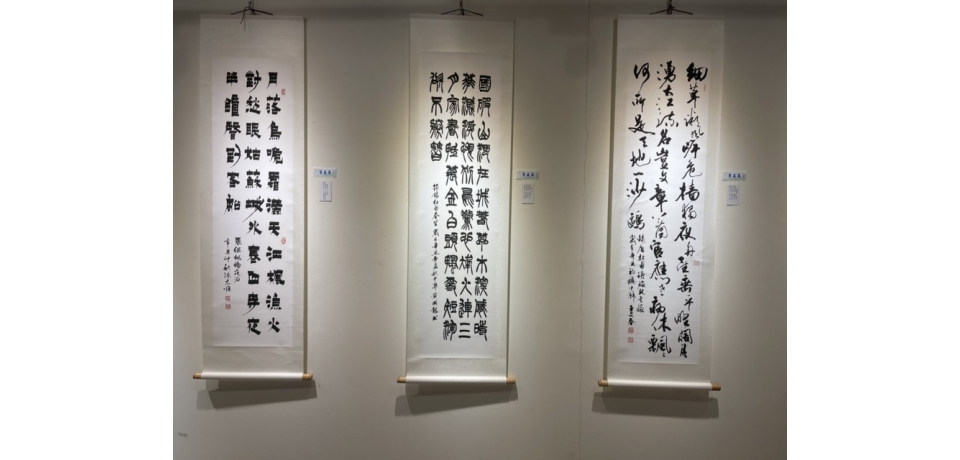 月落烏啼霜滿天江楓漁火
對愁眠姑蘇城外寒山寺夜
半鐘聲到客船
張繼楓橋夜泊
國破山河在城春草木深感時
花濺淚恨別鳥驚心烽火連三
月家書抵萬金白頭搔更短渾
欲不勝簪
細草微風岸危檣獨夜舟星垂平野闊月
湧大江流名豈文章著官應老病休飄飄
何所似天地一沙鷗